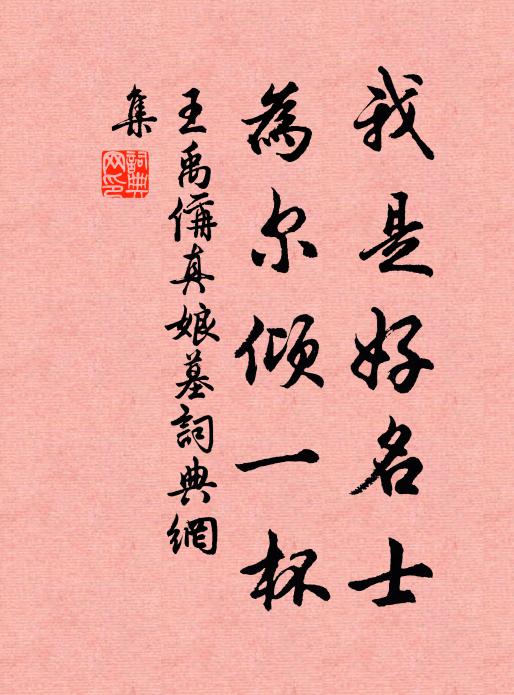 我是好名士
為尔傾一杯
王禹偁真娘墓詞典網
集
詞典網印